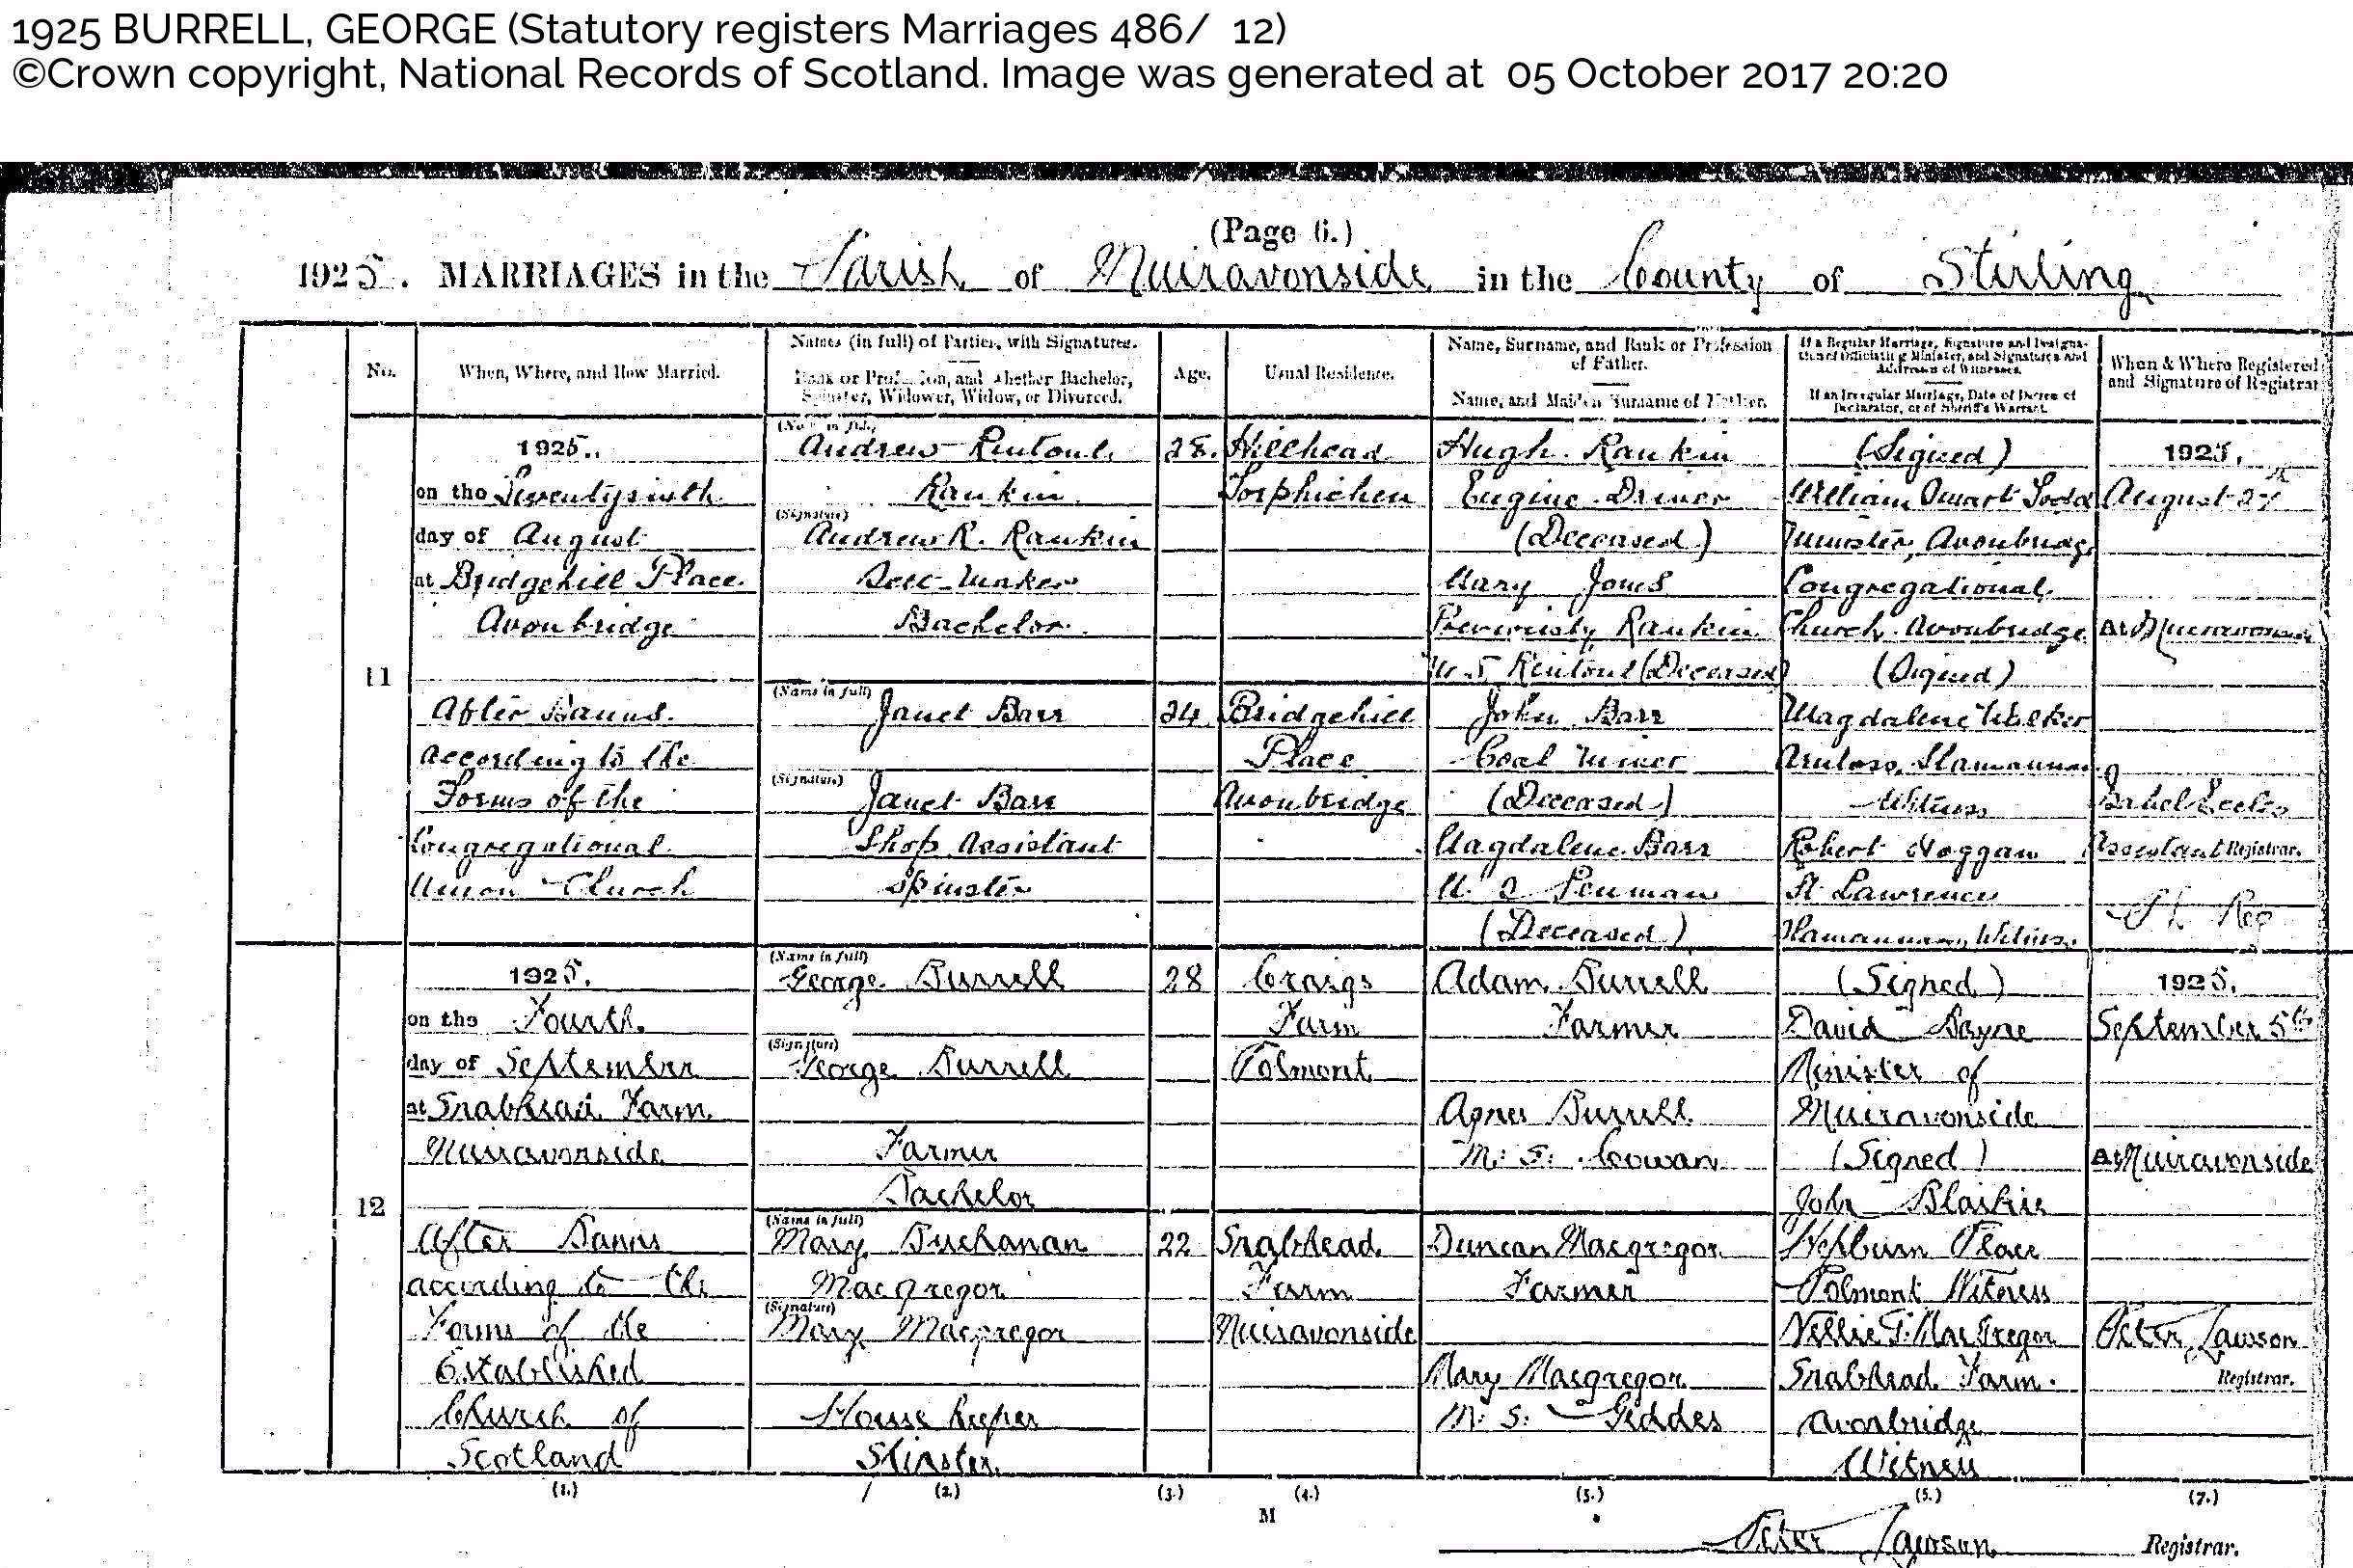 1925 BURRELL, GEORGE (Statutory registers Marriages 486/ 12)
©Crown copyright, National Records of Scotland. Image was generated at 05 October 2017 20:20
(Page 6.)
1925. MARRIAGES in the Parish of Muiravonside in the County of Stirling
No.
When, Where, and How Married.
Names (in full) of Parties, with Signatures.
Rank or Profession, and whether Bachelor,
Spinster, Widower, Widow, or Divorced.
Age.
Usual Residence.
Name, Surname, and Rank or Profession
of Father.
Name, and Maiden Surname of Mother.
If a Regular Marriage, Signature and Designa-
tion of Officiating Minister, and Signatures and
Addresses of Witnesses.
If an Irregular Marriage, Date of Decree of
Declarator, or of Sheriff's Warrant.
When & Where Registered
and Signature of Registrar
11
1925.
on the Twentysixth
day of August
at Bridgehill Place
Avonbridge
After Banns
according to the
Forms of the
Congregational
Union Church
(Name in full)
Andrew Rintoul
Rankin
(Signature)
Andrew R. Rankin
Sett-maker
Bachelor
(Name in full)
Janet Barr
(Signature)
Janet Barr
Shop Assistant
Spinster
28.
24
Hillhead
Torphichen
Bridgehill
Place
Avonbridge
Hugh Rankin
Engine Driver
(Deceased)
Mary Jones
Previously Rankin
M.S. Rintoul (Deceased)
John Barr
Coal Miner
(Deceased)
Magdalene Barr
M.S. Penman
(Deceased)
(Signed)
William Ewart Todd
Minister, Avonbridge
Congregational
Church, Avonbridge
(Signed)
Magdalene Walker
Slamannan
Witness
Robert Hoggan
St Lawrence
Slamannan, Witness.
1925.
August 27th
At Muiravonside
Isabel Eccles
Assistant Registrar.
P L Reg
12
1925.
on the Fourth
day of September
at Snabhead Farm
Muiravonside
After Banns
according to the
Forms of the
Established
Church of
Scotland
(Name in full)
George Burrell
(Signature)
George Burrell
Farmer
Bachelor
(Name in full)
Mary Buchanan
MacGregor
(Signature)
Mary Macgregor
House keeper
Spinster
28
22
Craigs
Farm
Polmont
Snabhead
Farm
Muiravonside
Adam Burrell
Farmer
Agnes Burrell
M.S. Cowan
Duncan Macgregor
Farmer
Mary Macgregor
M.S. Geddes
(Signed)
David Bayne
Minister of
Muiravonside
(Signed)
John Blaikie
Hepburn Place
Polmont Witness
Nellie T. MacGregor
Snabhead Farm.
Avonbridge
Witness
1925.
September 5th
At Muiravonside
Peter Lawson
Registrar.
(1.) (2.) (3.) (4.) (5.) (6.) (7.)
M
Peter Lawson Registrar.